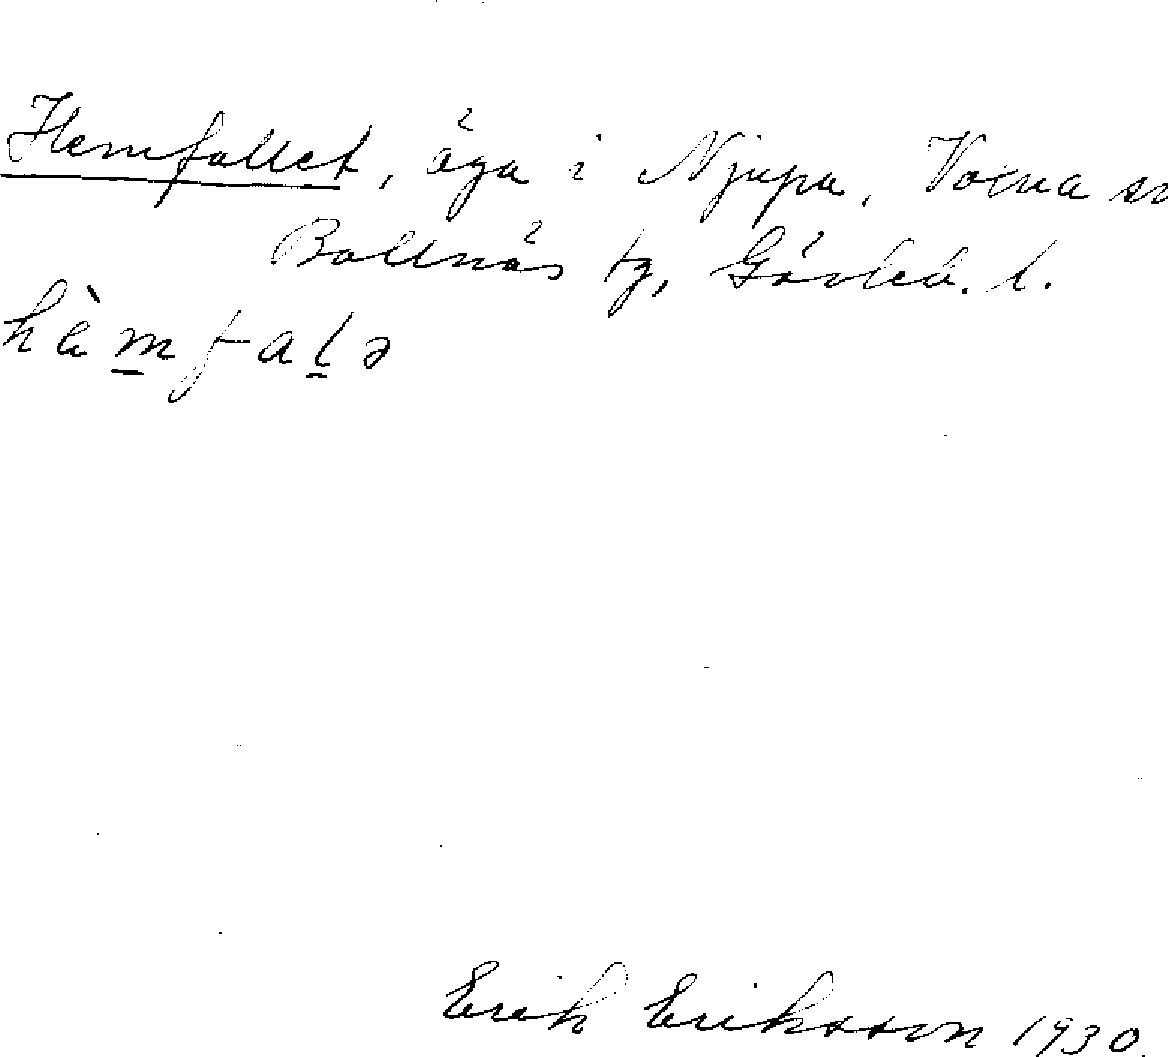 Hemfallet, äga i Njupa, Voxna sn
Bollnäs tg, Gävleb. l.
hèm̲fal̲ə
Erik Eriksson 1930.